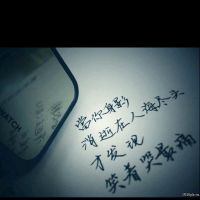 當你身影
消逝在人海尽头
才发现
笑着哭最痛
WATCH